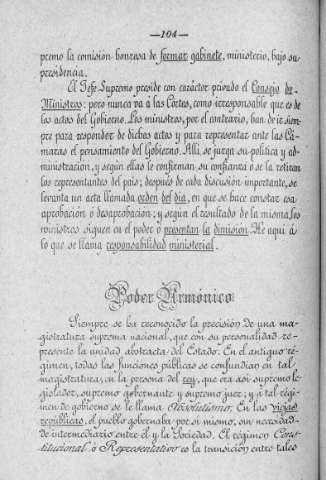 —104—
premo la comisión honrosa de formar gabinete, ministerio, bajo su
presidencia.
El Jefe Supremo preside con carácter privado el Consejo de
Ministros; pero nunca va a las Cortes, como irresponsable que es de
los actos del Gobierno. Los ministros, por el contrario, han de ir siem-
pre para responder de dichos actos y para representar ante las Cá-
maras el pensamiento del Gobierno. Allí se juzga su política y ad-
ministración, y según ellas le confirman su confianza ó se la retiran
los representantes del país; después de cada discusión importante, se
levanta un acta llamada orden del día, en que se hace constar esa
aprobación ó desaprobación; y según el resultado de la misma, los
ministros siguen en el poder ó presentan la dimisión. He aquí á
lo que se llama responsabilidad ministerial.
Poder Armónico
Siempre se ha reconocido la precisión de una ma-
gistratura suprema nacional, que con su personalidad re-
presente la unidad abstracta del Estado. En el antiguo ré-
gimen, todas las funciones públicas se confundían en tal
magistratura, en la persona del rey, que era así supremo le-
gislador, supremo gobernante y supremo juez; y á tal régi-
men de gobierno se le llama Absolutismo. En las viejas
repúblicas, el pueblo gobernaba por sí mismo, sin necesidad
de intermediario entre él y la Sociedad. El régimen Const-
itucional ó Representativo es la transición entre tales